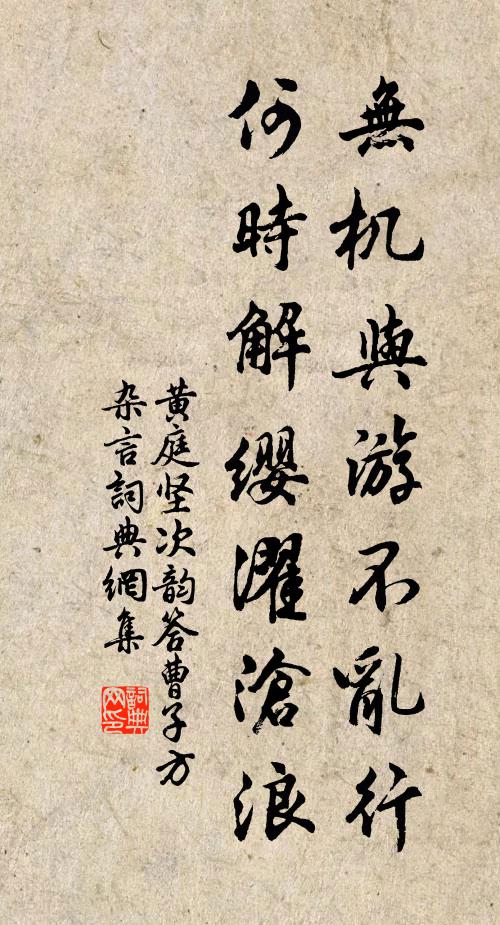 無机與游不亂行
何時解纓濯滄浪
黄庭坚次韵答曹子方
杂言詞典網集
詞典
网印